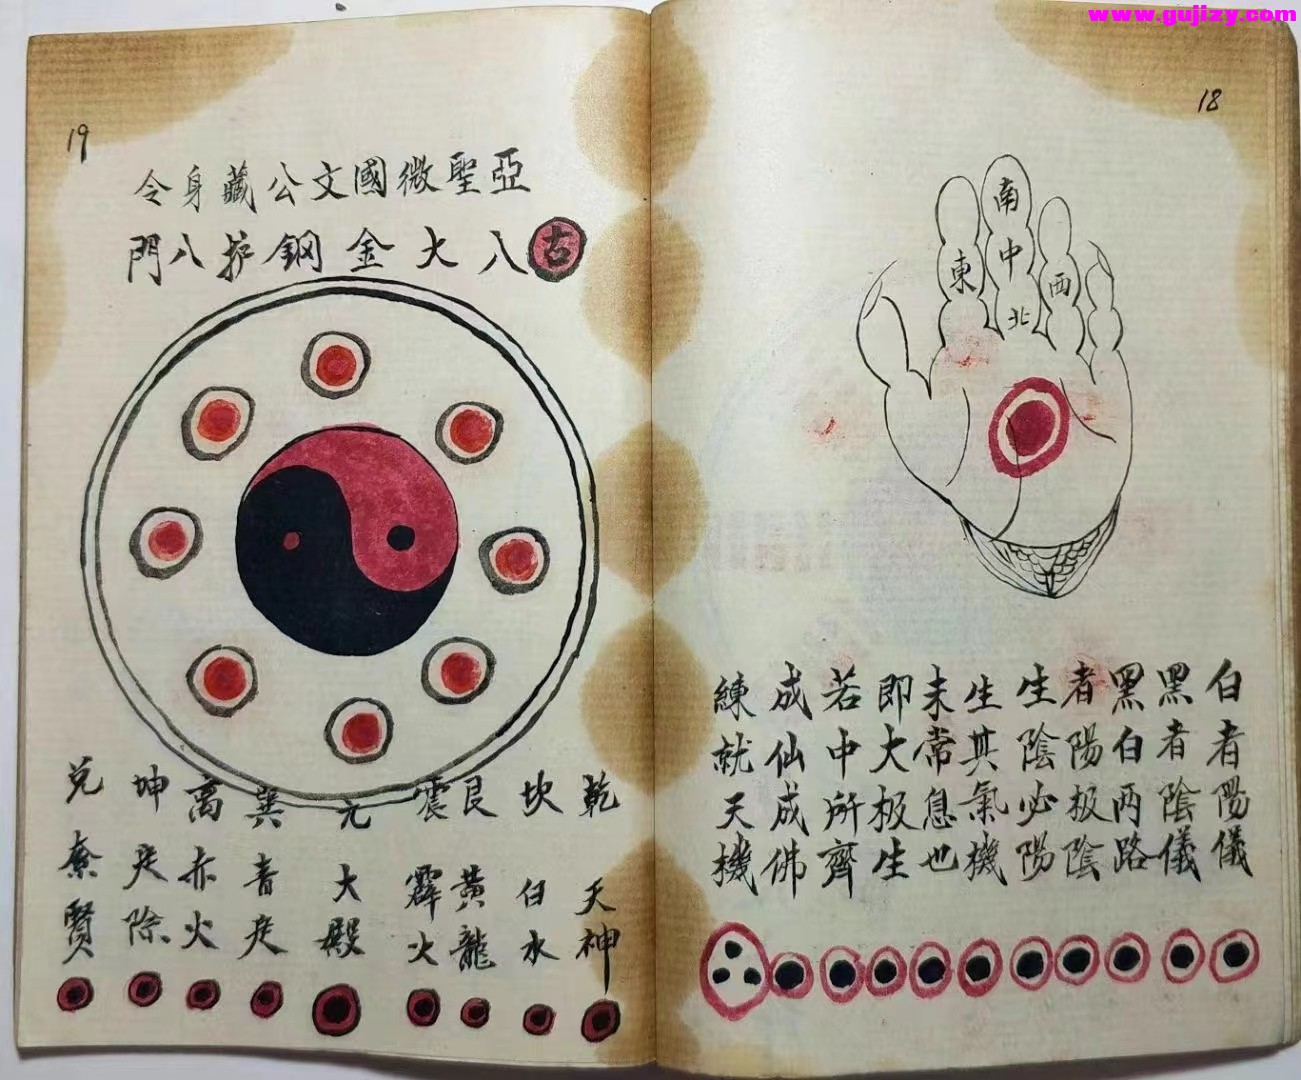 www.gujizy.com
18
南
中
北
東
西
白者陽儀
黑者陰儀
黑白两路
者陽极陰
生陰必陽
生其氣機
未常息也
即大极生
若中所齊
成仙成佛
練就天機
19
亞聖微國文公藏身令
古八大金鋼护八門
乾 天神
坎 白水
艮 黃龍
震 霹火
元 大殿
巽 青
离 赤火
坤 除
兑 賢